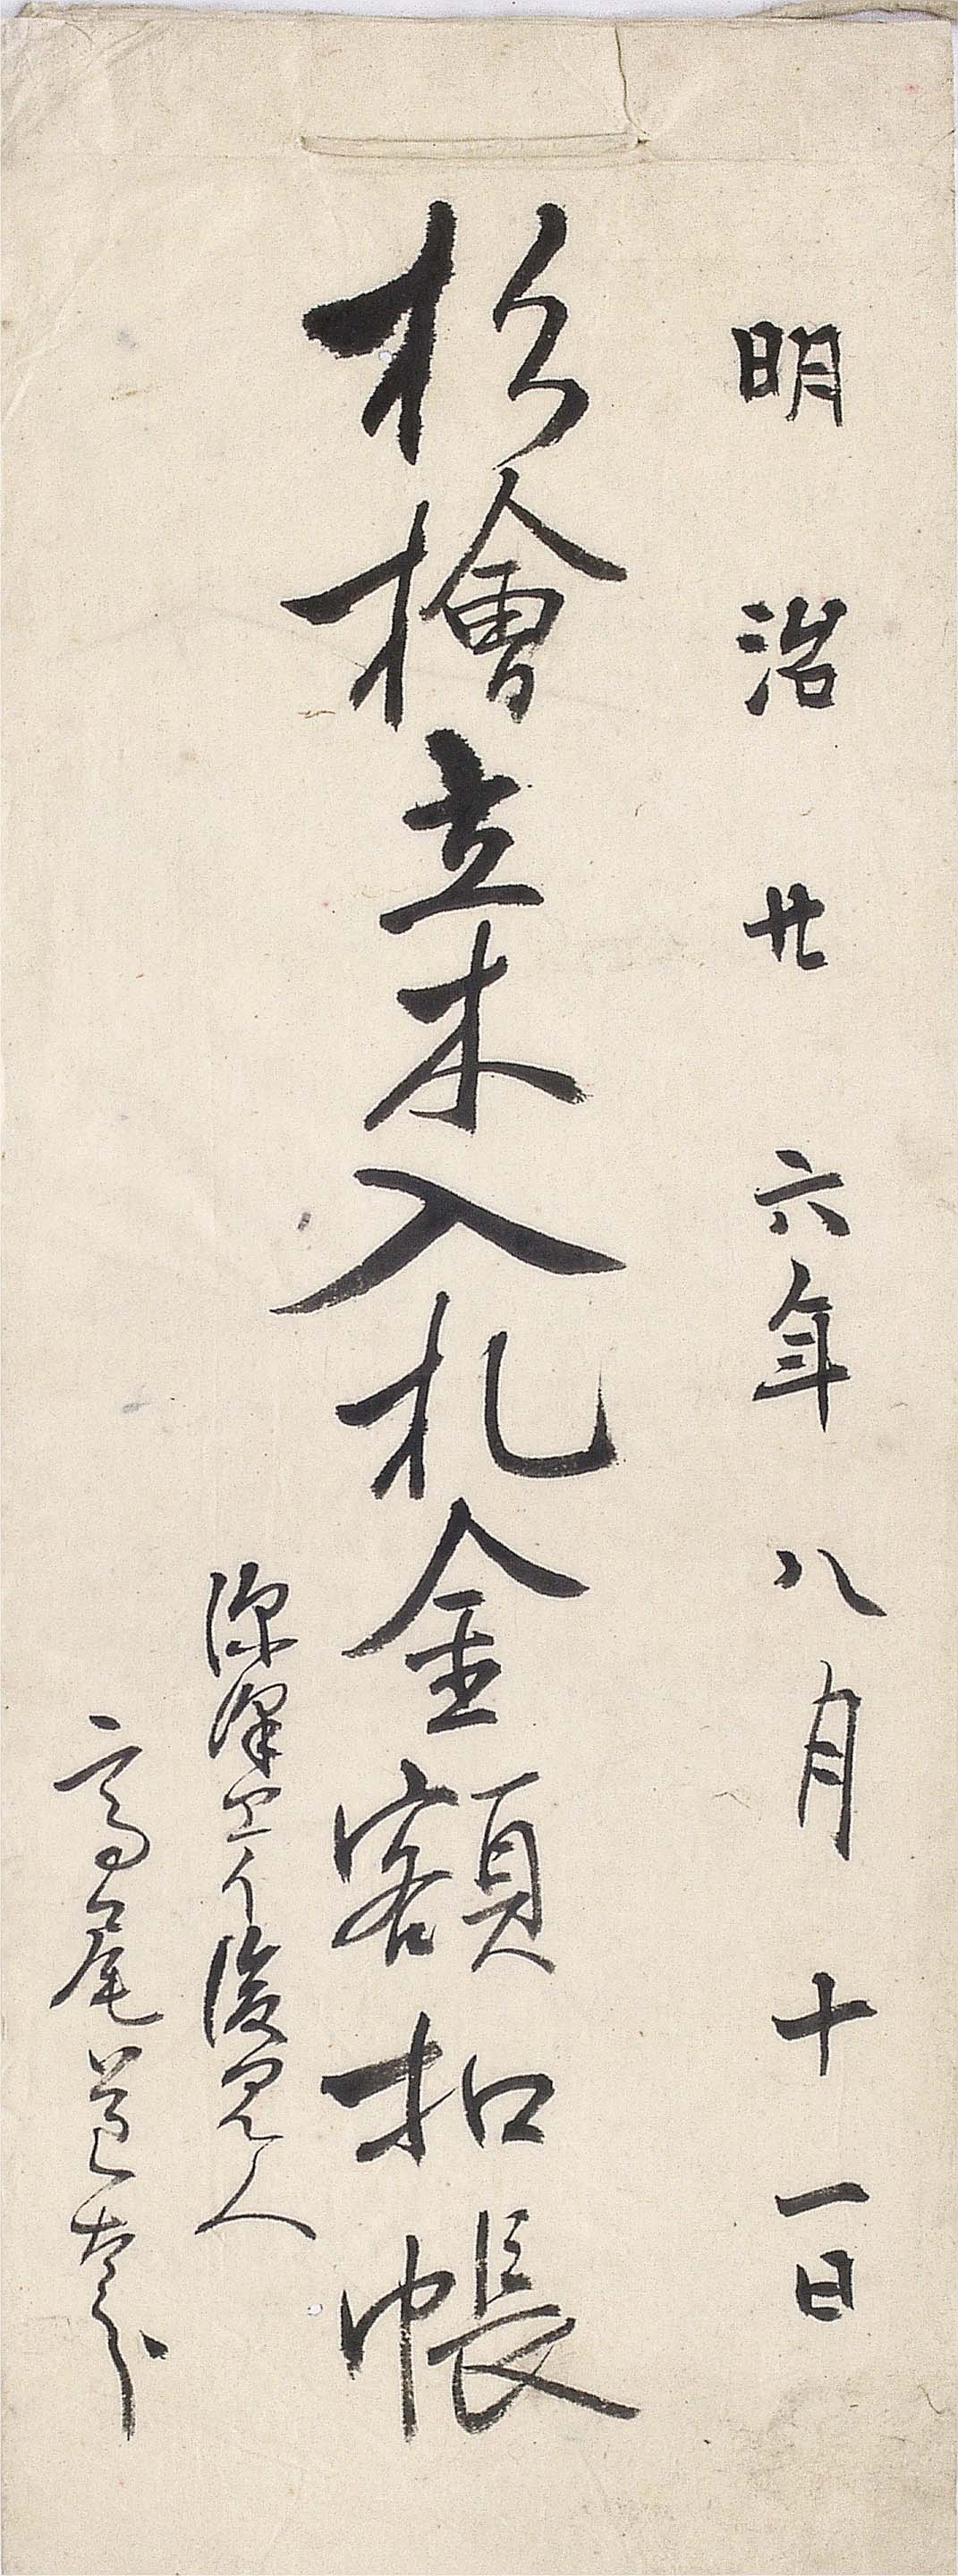 明治廿六年八月十一日
杉檜立木入札金額扣帳
深澤 後見人
高尾